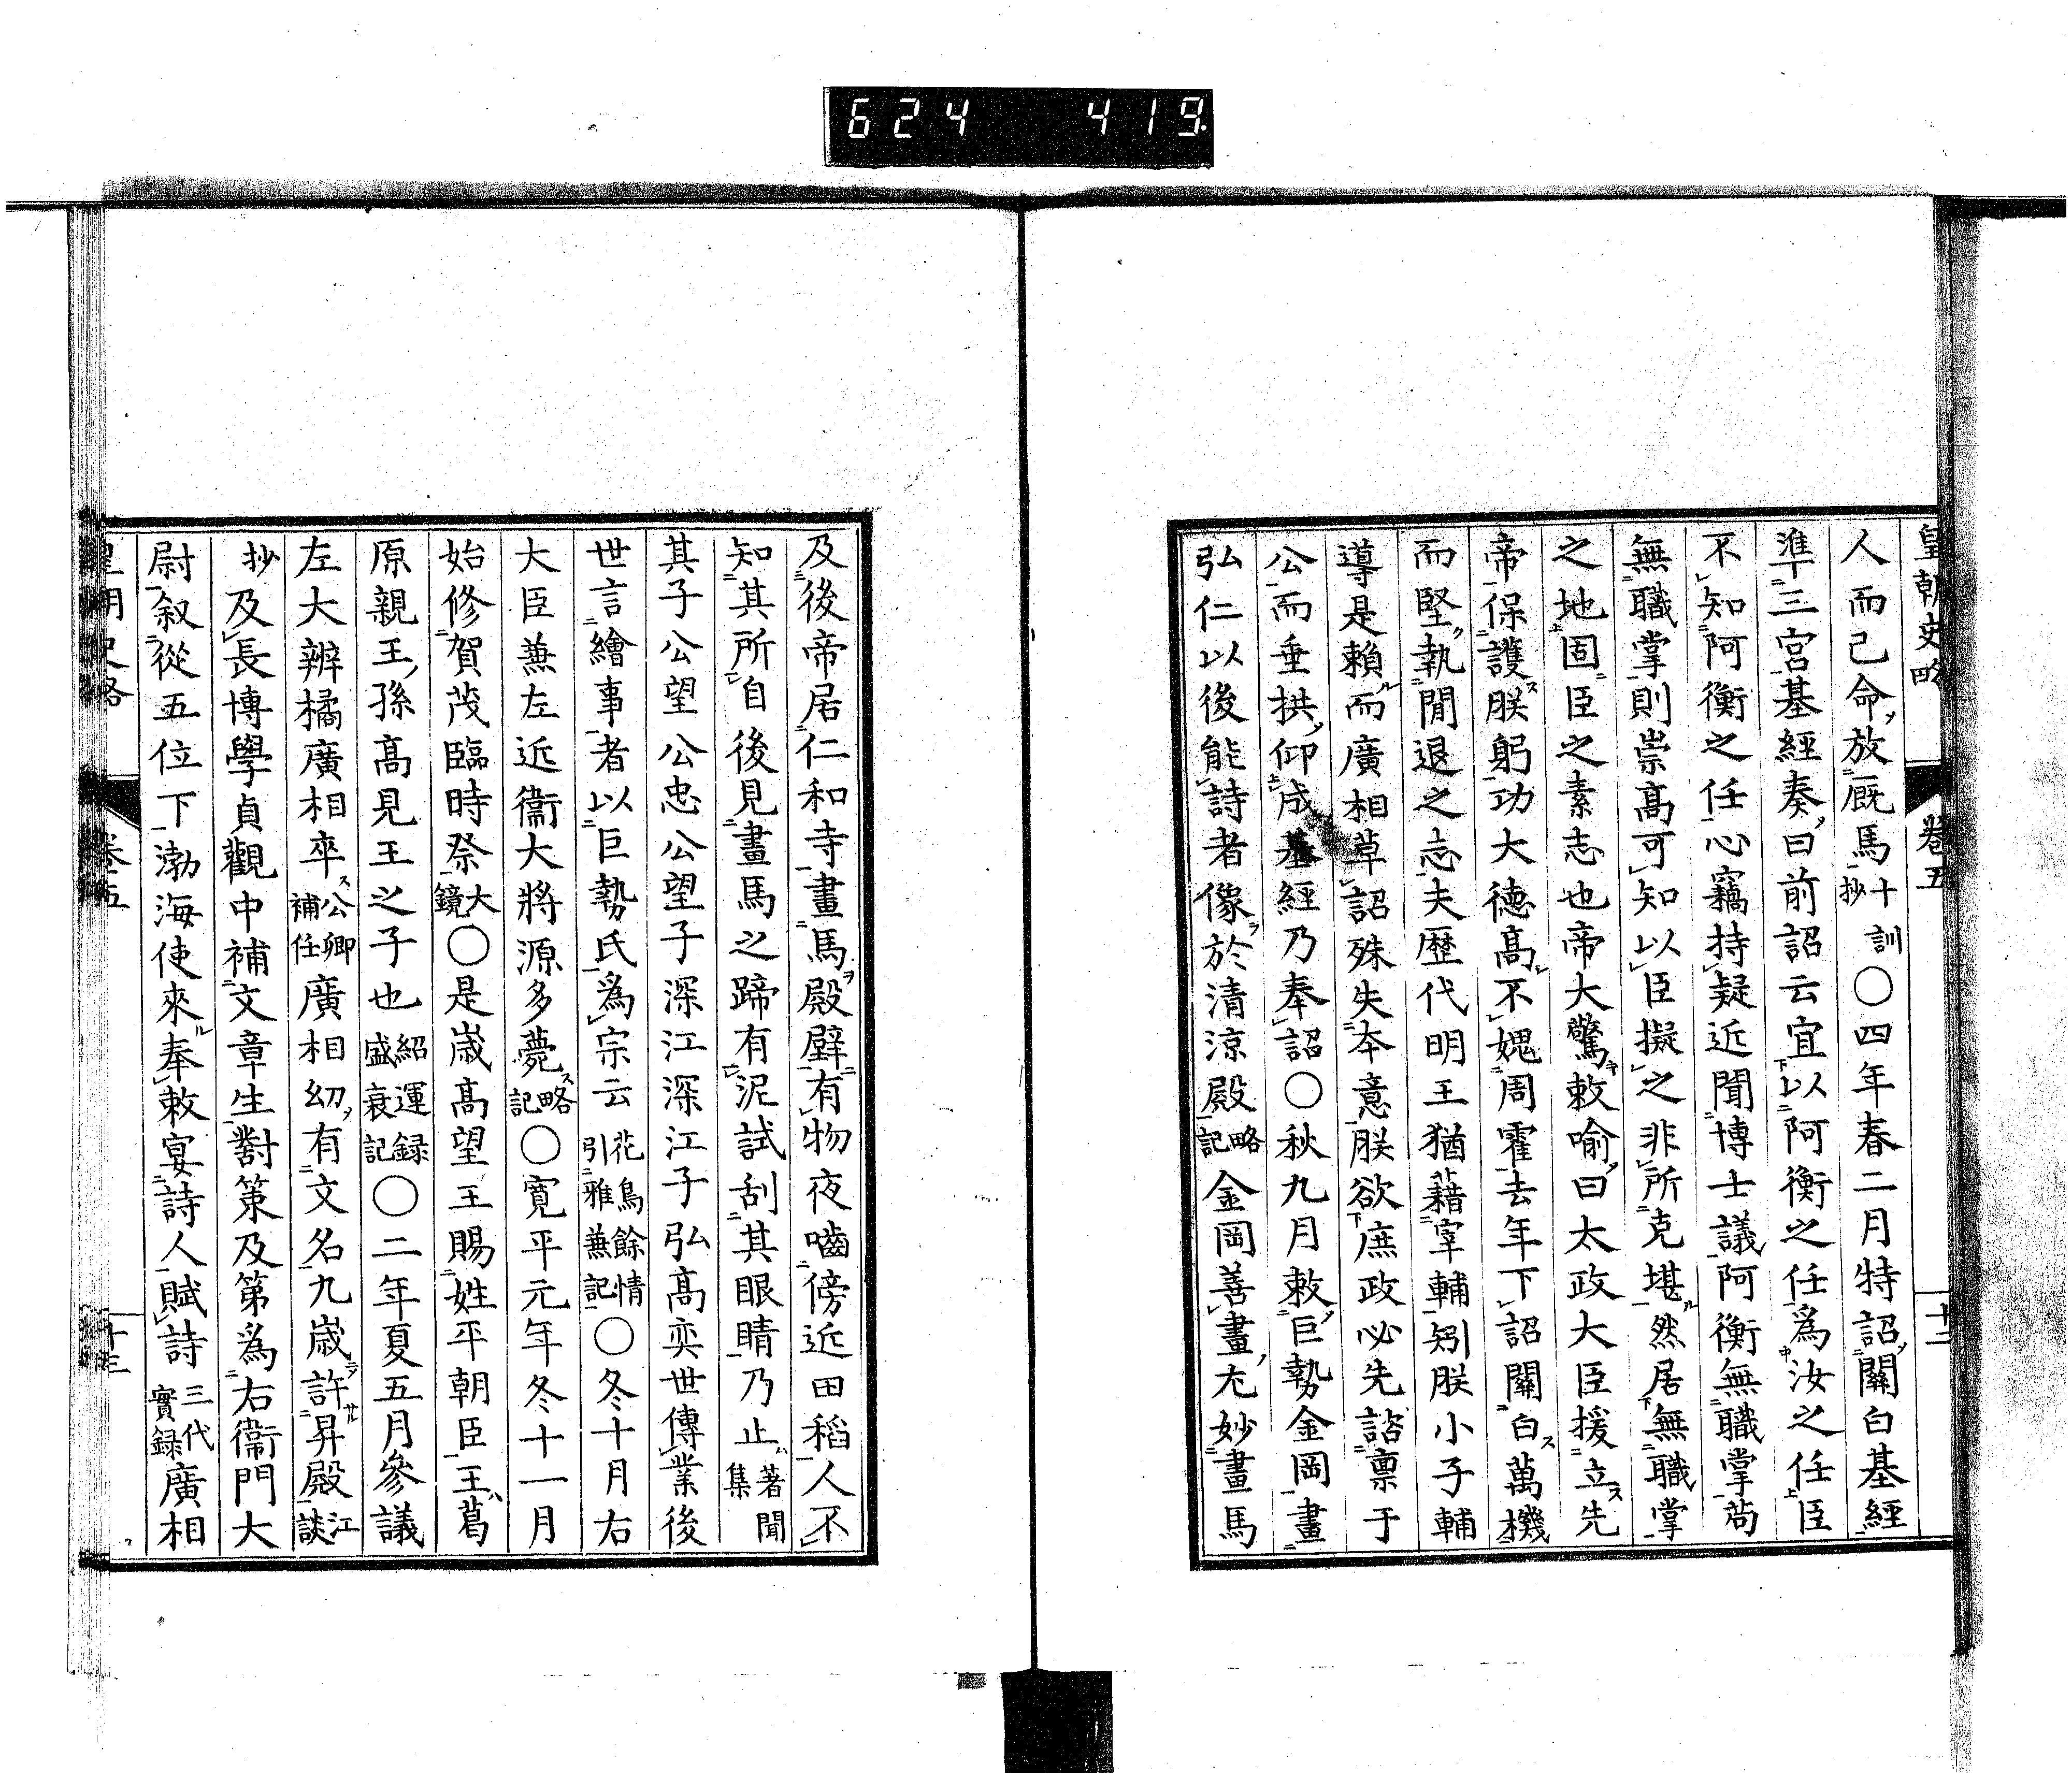 624 419
皇朝史略 卷五 十二
人而已命放厩馬十訓抄〇四年春二月特詔關白基經
準三宮基經奏曰前詔云宜以阿衡之任爲汝之任臣
不知阿衡之任心竊持疑近聞博士議阿衡無職掌苟
無職掌則崇高可知以臣擬之非所克堪然居無職掌
之地固臣之素志也帝大驚敕喻曰太政大臣援立先
帝保護朕躬功大德高不媿周霍去年下詔關白萬機
而堅執閒退之志夫歷代明王猶藉宰輔矧朕小子輔
導是賴而廣相草詔殊失本意朕欲庶政必先諮稟于
公而垂拱仰成基經乃奉詔〇秋九月敕巨勢金岡畫
弘仁以後能詩者像於清涼殿略記金岡善畫尤妙畫馬
及後帝居仁和寺畫馬殿壁有物夜嚙傍近田稻人不
知其所自後見畫馬之蹄有泥試刮其眼睛乃止著聞集
其子公望公忠公望子深江深江子弘高奕世傳業後
世言繪事者以巨勢氏爲宗云花鳥餘情引雅兼記〇冬十月右
大臣兼左近衞大將源多薨略記〇寬平元年冬十一月
始修賀茂臨時祭大鏡〇是歲高望王賜姓平朝臣王葛
原親王孫高見王之子也紹運録盛衰記〇二年夏五月參議
左大辨橘廣相卒公卿補任廣相幼有文名九歲許昇殿江談
抄及長博學貞觀中補文章生對策及第爲右衞門大
尉叙從五位下渤海使來奉敕宴詩人賦詩三代實録廣相
皇朝史略 卷五 十三